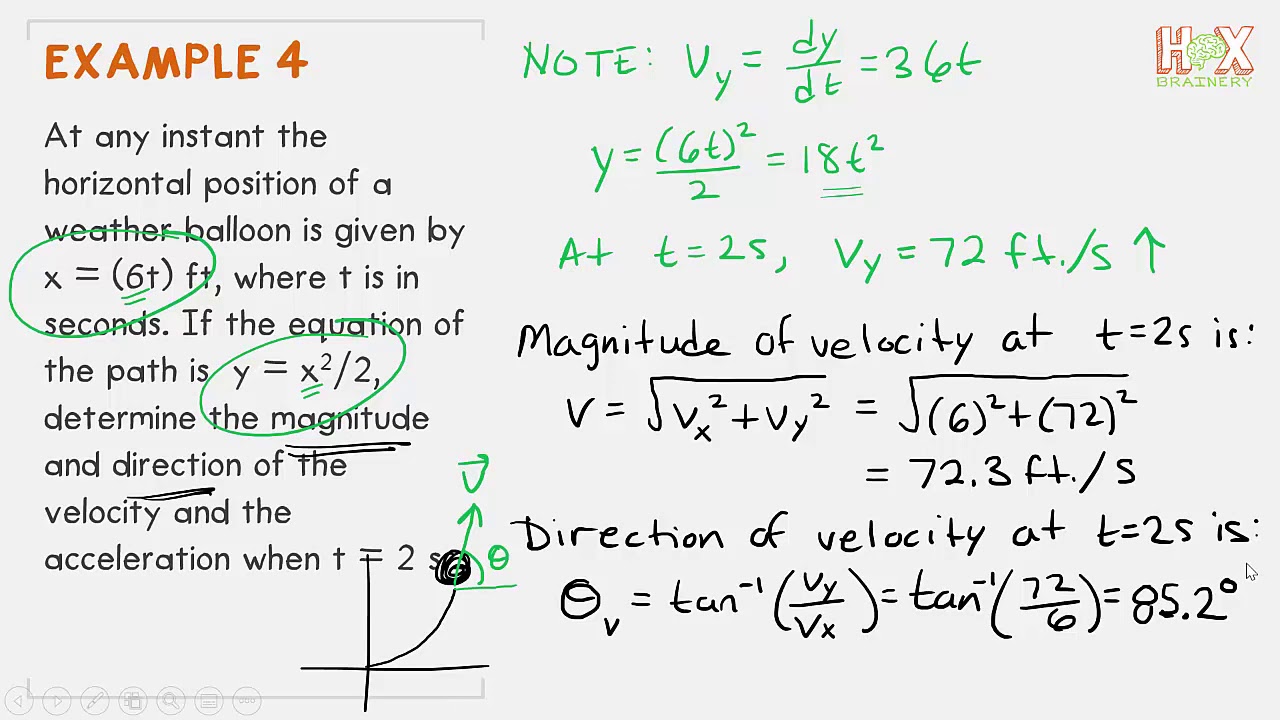 EXAMPLE 4
At any instant the
horizontal position of a
weather balloon is given by
x = (6t) ft, where t is in
seconds. If the equation of
the path is y = x²/2,
determine the magnitude
and direction of the
velocity and the
acceleration when t = 2 s
V
θ
NOTE: Vy = dy/dt = 36t
y = (6t)²/2 = 18t²
At t=2s, Vy = 72 ft./s ↑
Magnitude of velocity at t=2s is:
V = √Vx²+Vy² = √(6)²+(72)²
= 72.3 ft./s
Direction of velocity at t=2s is:
θv = tan⁻¹(Vy/Vx) = tan⁻¹(72/6) = 85.2°
HOX
BRAINERY